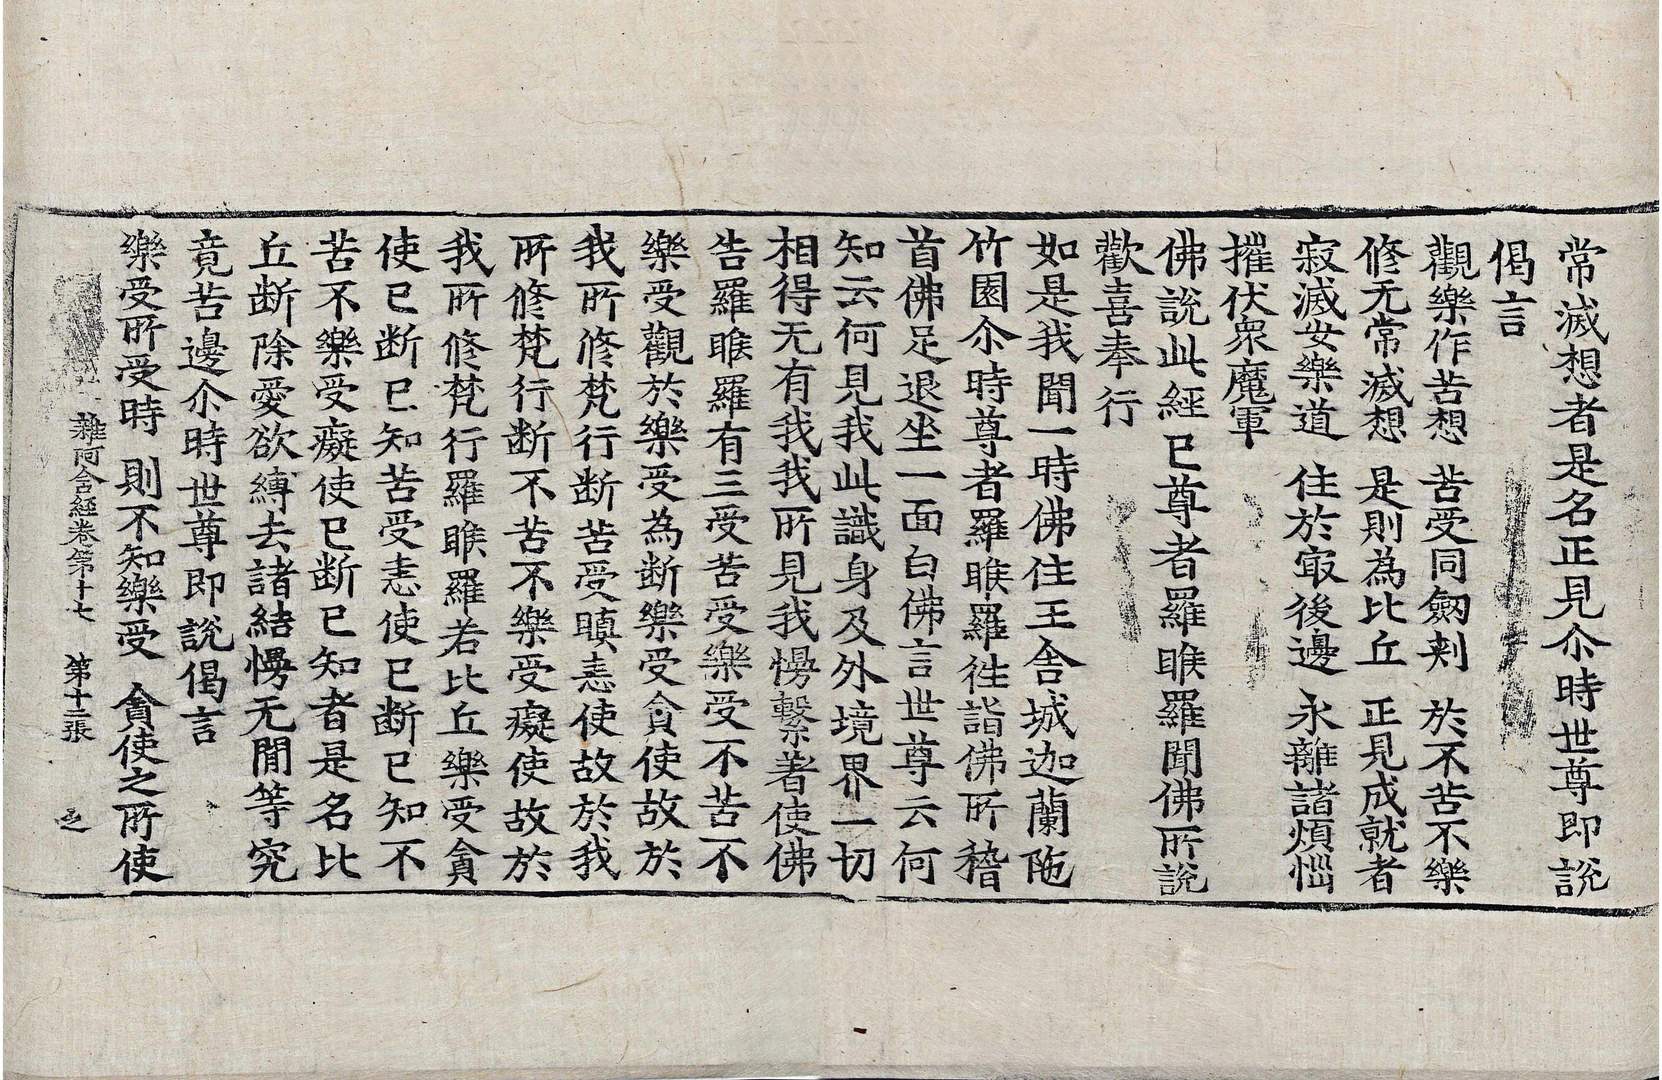 常滅想者是名正見尒時世尊即說
偈言
觀樂作苦想 苦受同劒刺 於不苦不樂
修无常滅想 是則為比丘 正見成就者
寂滅安樂道 住於㝡後邊 永離諸煩惱
摧伏眾魔軍
佛說此經已尊者羅睺羅聞佛所說
歡喜奉行
如是我聞一時佛住王舍城迦蘭陁
竹園尒時尊者羅睺羅往詣佛所稽
首佛足退坐一面白佛言世尊云何
知云何見我此識身及外境界一切
相得无有我我所見我慢繫著使佛
告羅睺羅有三受苦受樂受不苦不
樂受觀於樂受為斷樂受貪使故於
我所修梵行斷苦受瞋恚使故於我
所修梵行斷不苦不樂受癡使故於
我所修梵行羅睺羅若比丘樂受貪
使已斷已知苦受恚使已斷已知不
苦不樂受癡使已斷已知者是名比
丘斷除愛欲縛去諸結慢无閒等究
竟苦邊尒時世尊即說偈言
樂受所受時 則不知樂受 貪使之所使
雜阿含經卷第十七 第十二張